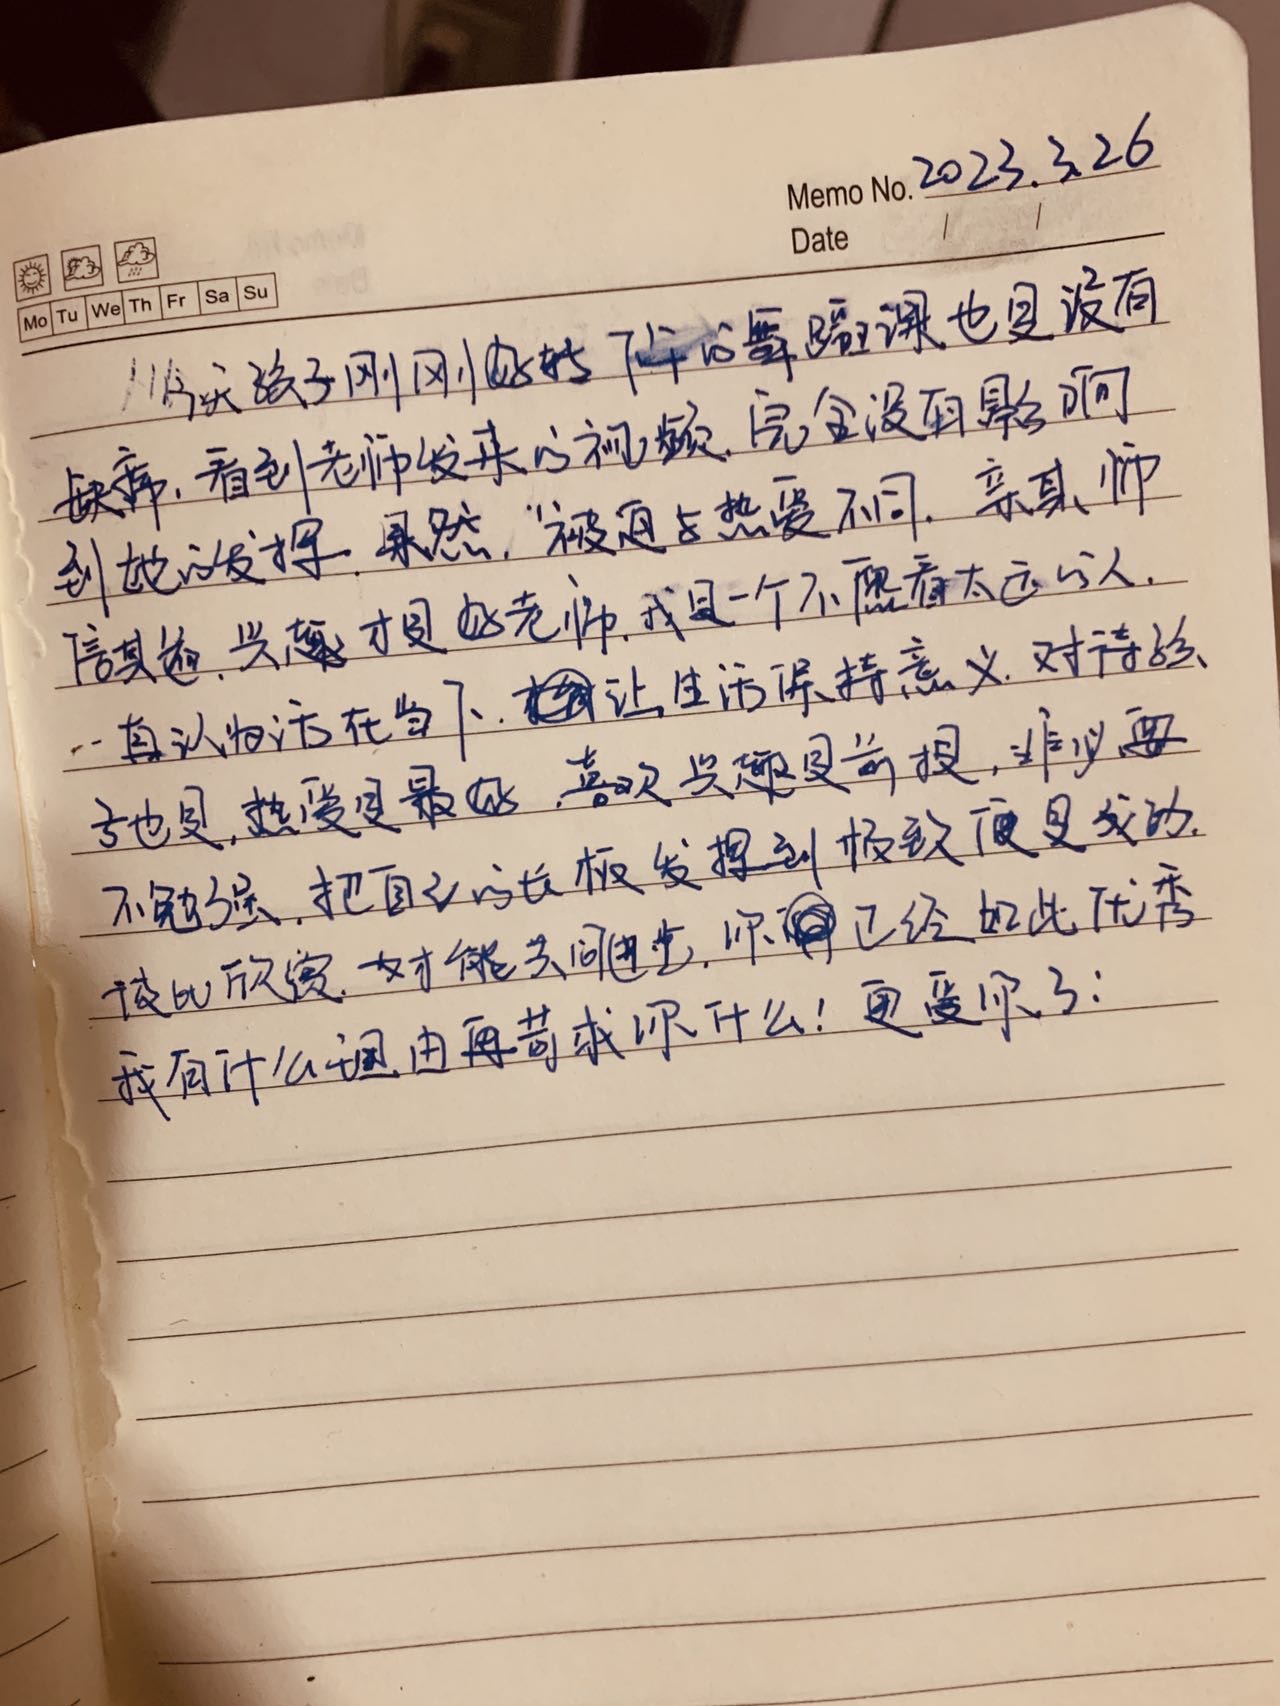 Memo No. 2023.3.26
Date / /
Mo Tu We Th Fr Sa Su
今天孩子刚刚好转 下午的舞蹈课也是没有
缺席,看到老师发来的视频,完全没有影响
到她的发挥,果然,“被迫与热爱不同,亲其师
信其道,兴趣才是好老师,我是一个不愿看太远的人,
一直认为活在当下,让生活保持意义,对待孩
子也是,热爱是最好,喜欢兴趣是前提,非必要
不勉强,把自己的长板发挥到极致便是成功,
彼此欣赏,才能共同进步,你已经如此优秀
我有什么理由再苛求你什么!更爱你了: